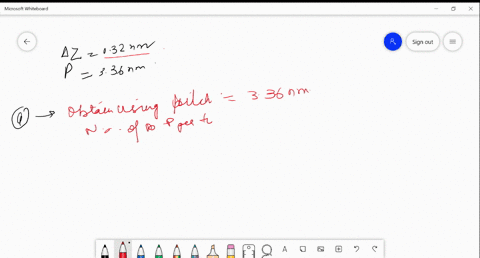 Microsoft Whiteboard
Sign out
ΔZ = 0.32 nm
P = 3.36 nm
(a) → Obtain using pitch = 3.36 nm
No. of bp per t
A